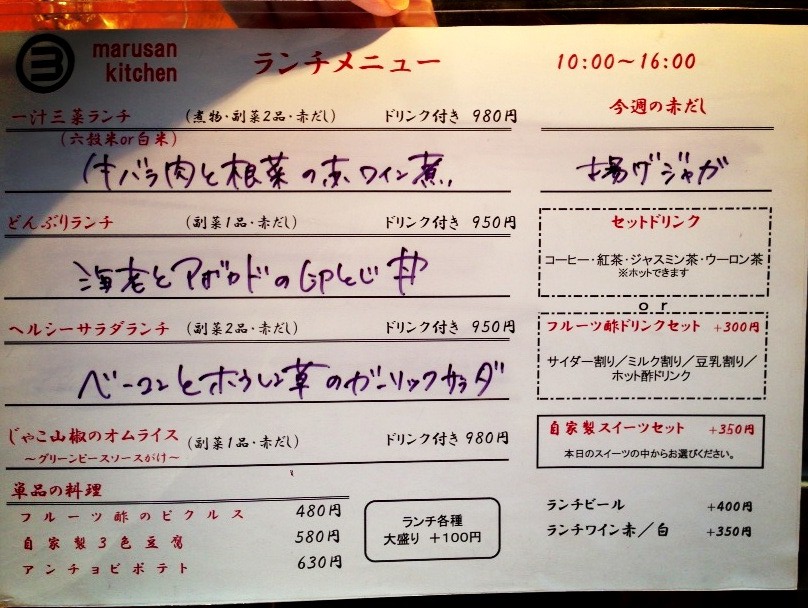 marusan
kitchen
ランチメニュー
10:00～16:00
一汁三菜ランチ (煮物・副菜2品・赤だし) ドリンク付き 980円
(六穀米or白米)
牛バラ肉と根菜の赤ワイン煮
どんぶりランチ (副菜1品・赤だし) ドリンク付き 950円
海老とアボカドのGPとじ丼
ヘルシーサラダランチ (副菜2品・赤だし) ドリンク付き 950円
ベーコンとホウレン草のガーリックサラダ
じゃこ山椒のオムライス (副菜1品・赤だし) ドリンク付き 980円
～グリーンピースソースがけ～
単品の料理
フルーツ酢のピクルス 480円
自家製3色豆腐 580円
アンチョビポテト 630円
ランチ各種
大盛り +100円
今週の赤だし
揚げジャガ
セットドリンク
コーヒー・紅茶・ジャスミン茶・ウーロン茶
※ホットできます
or
フルーツ酢ドリンクセット +300円
サイダー割り／ミルク割り／豆乳割り／
ホット酢ドリンク
自家製スイーツセット +350円
本日のスイーツの中からお選びください。
ランチビール +400円
ランチワイン赤／白 +350円